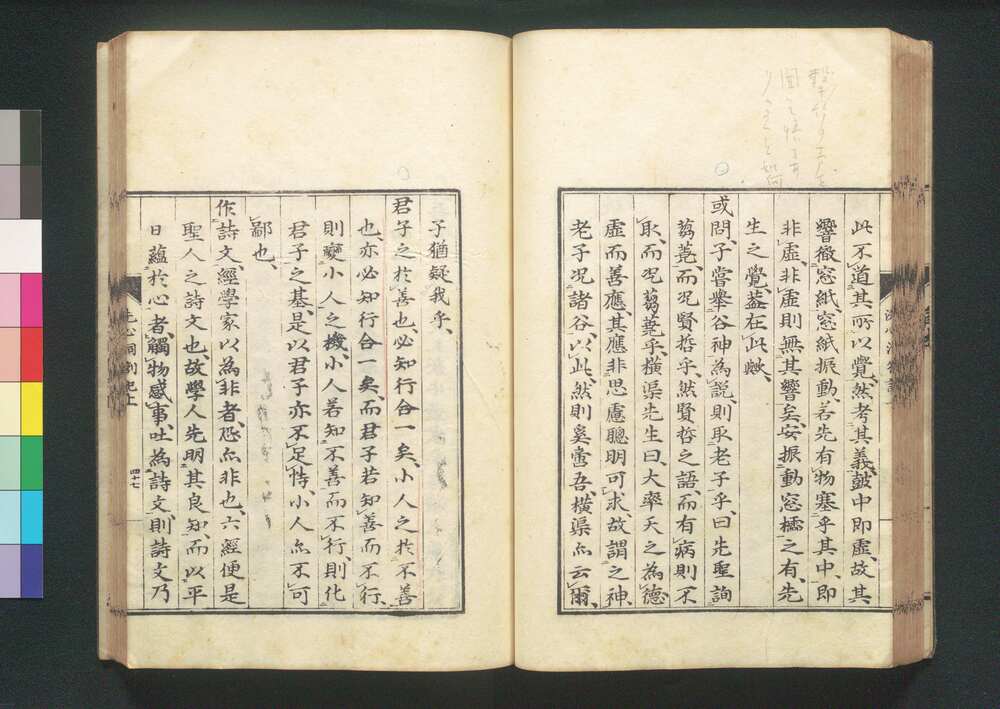 此不道其所以覺然考其義皷中即虛、故其
響徹窓紙、窓紙振動、若先有物塞乎其中、即
非虛、非虛則無其響矣、安振動窓櫺之有、先
生之覺蓋在此歟、
或問、子嘗擧谷神為說、則取老子乎、曰、先聖詢
蒭蕘、而况賢哲乎、然賢哲之語、而有病則不
取、而况蒭蕘乎、橫渠先生曰、大率天之為德、
虛而善應、其應非思慮聰明可求、故謂之神、
老子况諸谷、以此、然則奚啻吾、橫渠亦云爾、
子猶疑我乎、
君子之於善也、必知行合一矣、小人之於不善
也、亦必知行合一矣、而君子若知善而不行、
則變小人之機、小人若知不善而不行、則化
君子之基、是以君子亦不足恃、小人亦不可
鄙也、
作詩文、經學家以為非者、恐亦非也、六經便是
聖人之詩文也、故學人先明其良知、而以平
日蘊於心者、觸物感事、吐為詩文、則詩文乃
洗心洞劄記上
四十七